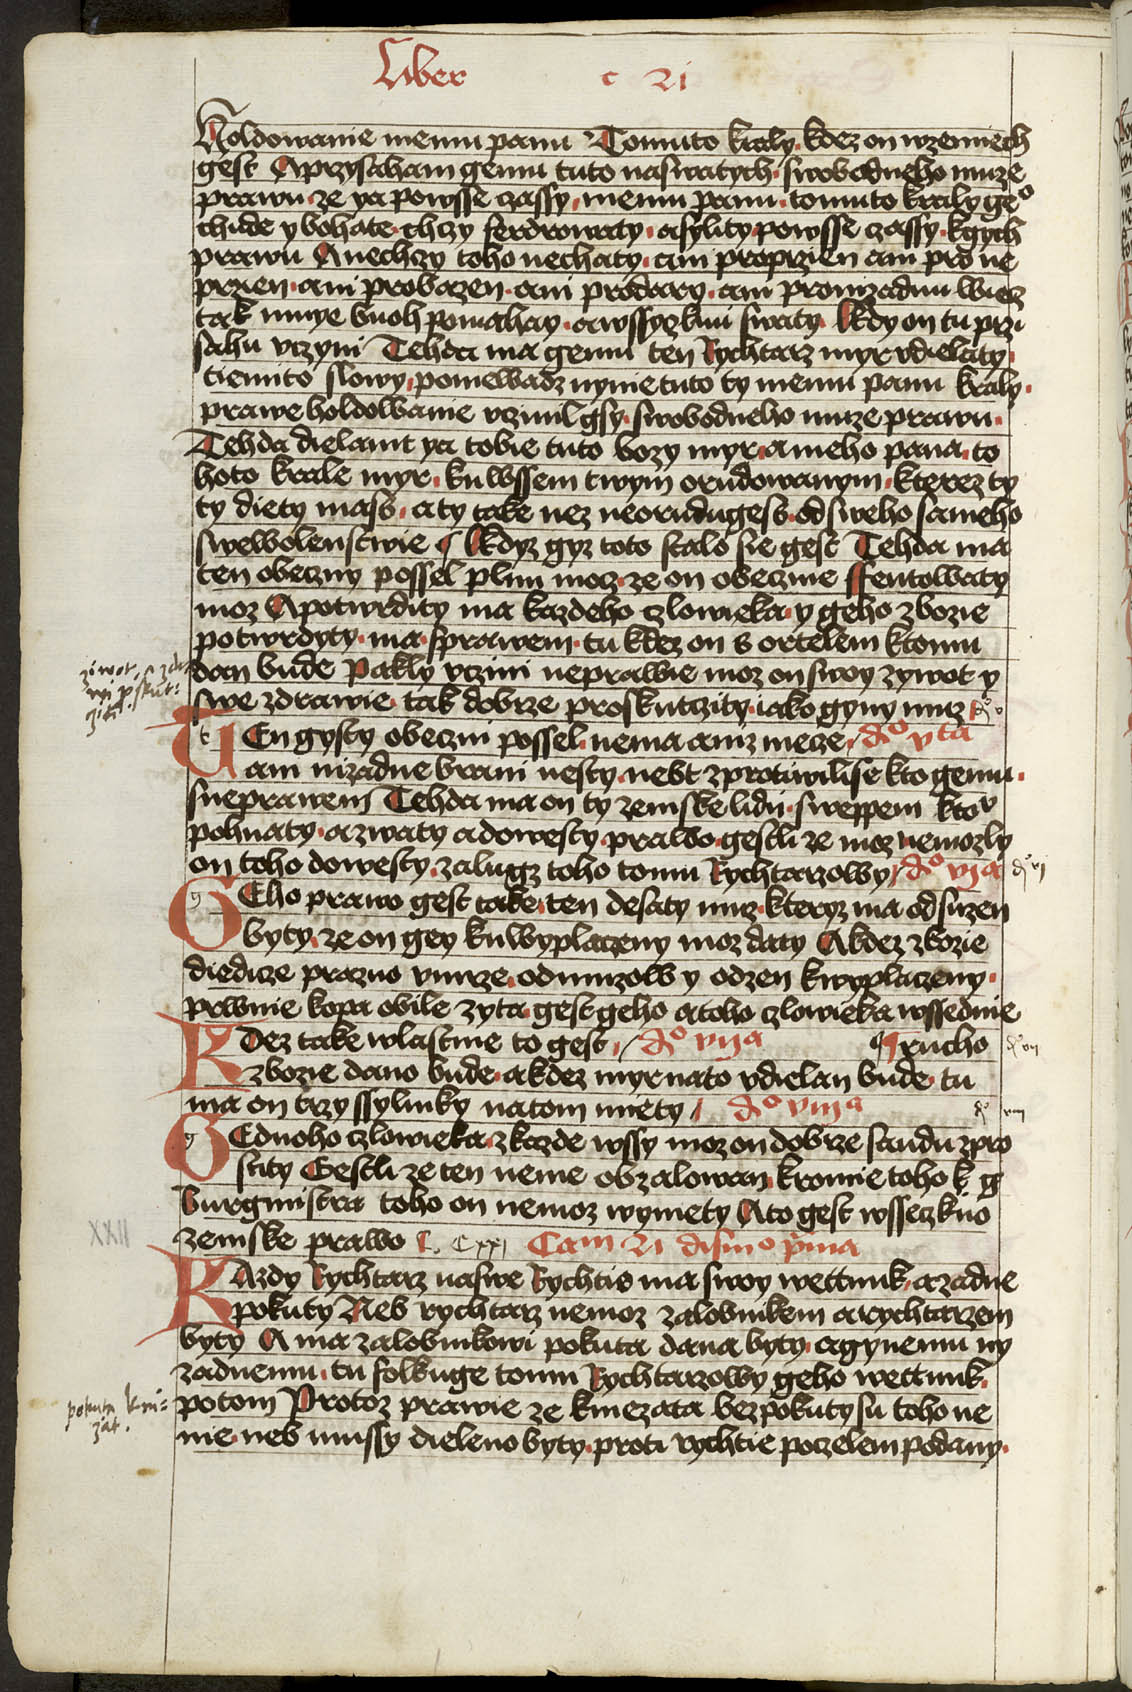 Liber c 21
Holdowanie memu panu Tomuto kraly kdez on wzemiech
gest Aprzysaham gemu tuto naswatych swobodneho muze
prawu ze ya powsse czassy memu panu tomuto kraly geo
chude y bohate chczy ferdrowaty asylity powsse czassy kgych
prawu Anechczy toho nechaty ani proprzien ani pro ne
przien ani probazen ani prodary ani pronizadnu wiecz
tak mnye buoh pomahay awssyczkni swaty Kdy on tu przi
sahu vczyni Tehda ma gemu ten Rychtarz myr vdielaty
tiemito slowy poniewadz nynie tuto ty memu panu kraly
prawe holdowanie vczinil gsy swobodneho muze prawu
Tehda dielamt ya tobie tuto bozy myr ameho pana to
hoto krale myr kuwssem twym orudowanym kterez ty
ty diety mass aty take nez neorudugess od sweho sameho
swewolenstwie Kdyz gyz toto stalo sie gest Tehda ma
ten obeczny possel plnu mocz ze on obecznie ffentowaty
moz Apotwrdity ma kazdeho czlowieka y geho zbozie
potwrdyty ma sprawem tu kdez on s ortelem ktomu
dan bude Pakly vczini neprawie moz on swoy zywot y
swe zdrawie tak dobrze proskutczity iako gyny muz
TEn gysty obeczni possel nema aniz mecze do vta
ani nizadne brani nesty nebt zprotiwilise kto gemu
sneprawem Tehda ma on ty zemske lidi sweppem ktov
pohnaty azwaty adowesty prawo gestli ze moz nemozly
on toho dowesty zalugz toho tomu Rychtarzowy do vja
GEho prawo gest take ten desaty muz kteryz ma odsuzen
byty ze on gey kuwyplaczeny moz daty Akdez zbozie
diedicze prazno vmrze odmuzow y odzen kwyplaczeny
pewnie kopa obile zyta gest geho atoho czlowieka wssednie
KDez take wlastnie to gest do vija rucho
zbozie dano bude akdez myr nato vdielan bude tu
ma on trzy ssylinky natom miety do viija
GEdnoho czlowieka zkazde wssy moz on dobrze saudu zpro
stity Gestli ze ten neme obzalowan kromie toho k g
Burgmistra toho on nemoz wymiety Ato gest wsseczkno
zemske prawo C. Cxxi Cam 21 disino prima
KAzdy Rychtarz naswe Rychtie ma swoy wettunk azadne
pokuty Neb rychtarz nemoz zalobnikem arychtarzem
byty A ma zalobnikowi pokuta dana byty agynemu ny
zadnemu tu folkuge tomu Rychtarzowy geho wettunk
potom Protoz prawie ze kniezata bezpokuty su toho ne
nie neb mussy dieleno byty proti rychtie poczelem podany
ziwot
XXII
pokuta knie=
zat.